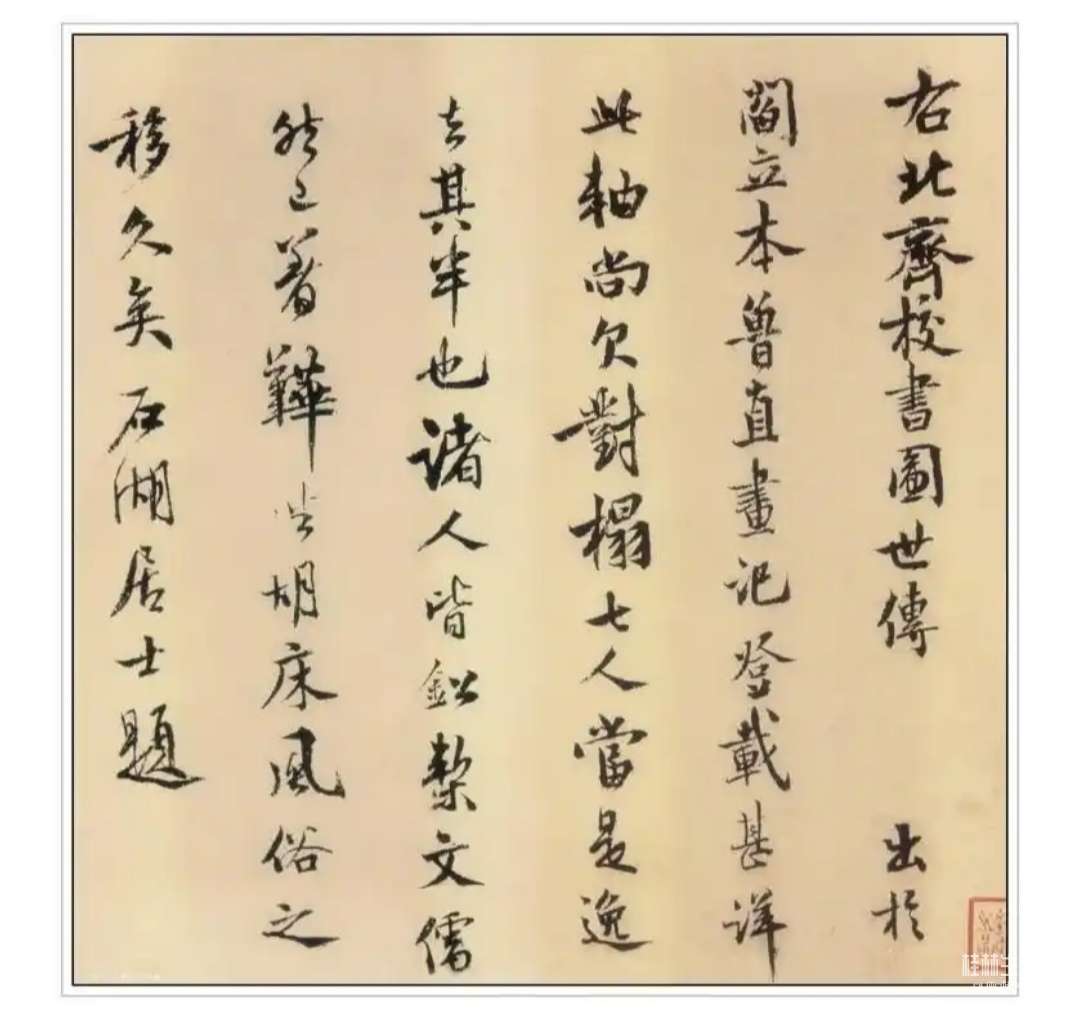 右北齊校書圖世傳 出於
閻立本魯直畫記登載甚詳
此軸尚欠對榻七人當是逸
去其半也諸人皆鈆槧文儒
然已著鞾坐胡床風俗之
移久矣石湖居士題
桂林